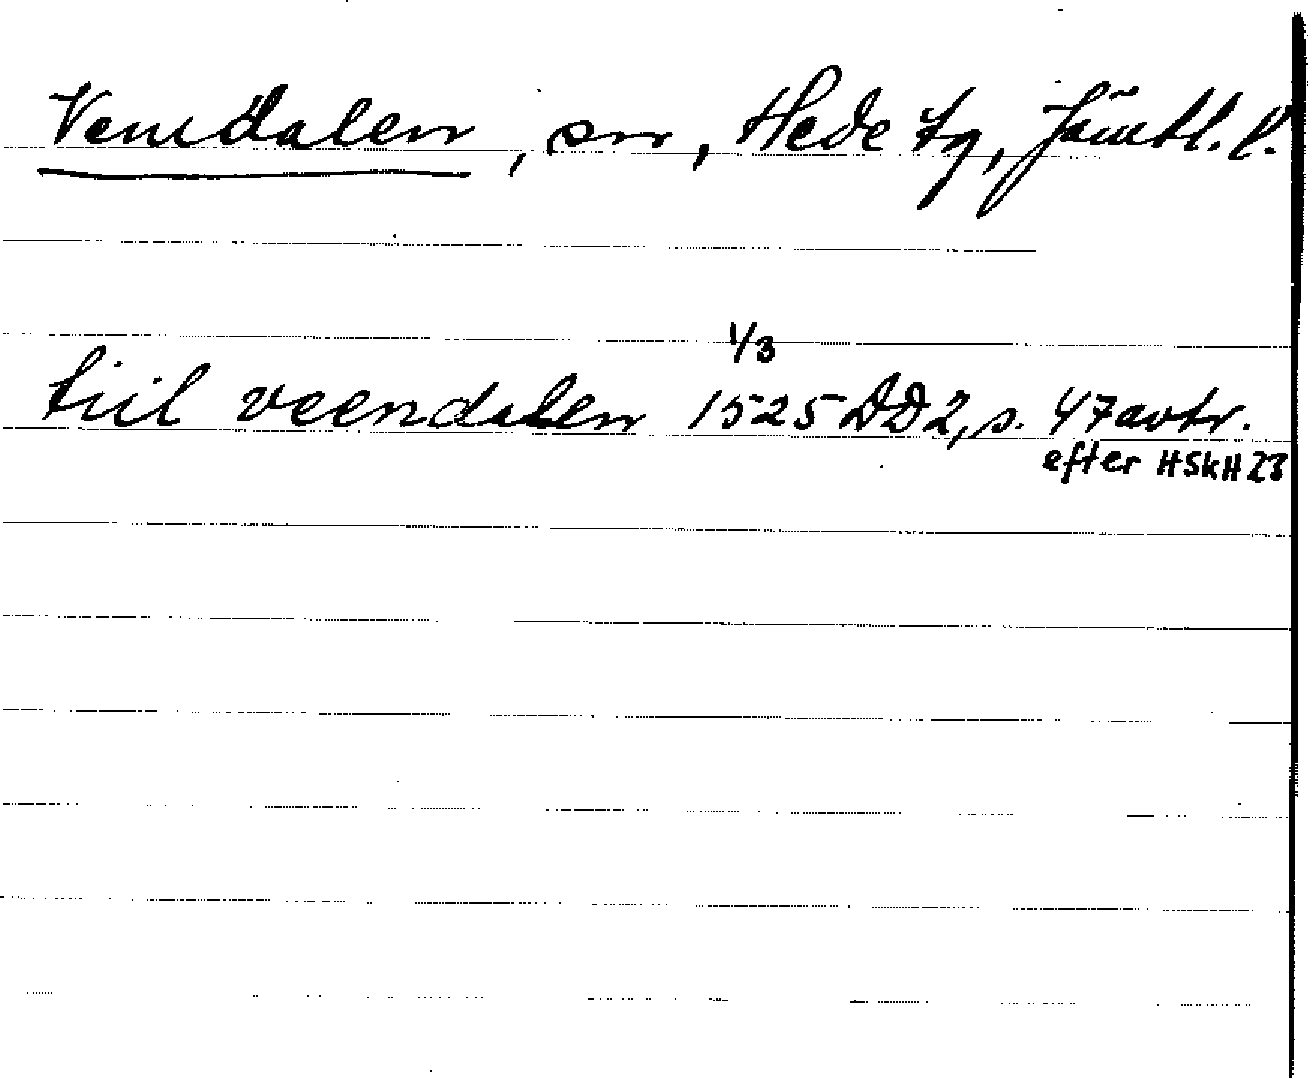 Vemdalen, sn, Hede tg, Jämtl. l.
1/3
tiil veendalen 1525 DD2, s. 47 avtr.
efter HSkH 23